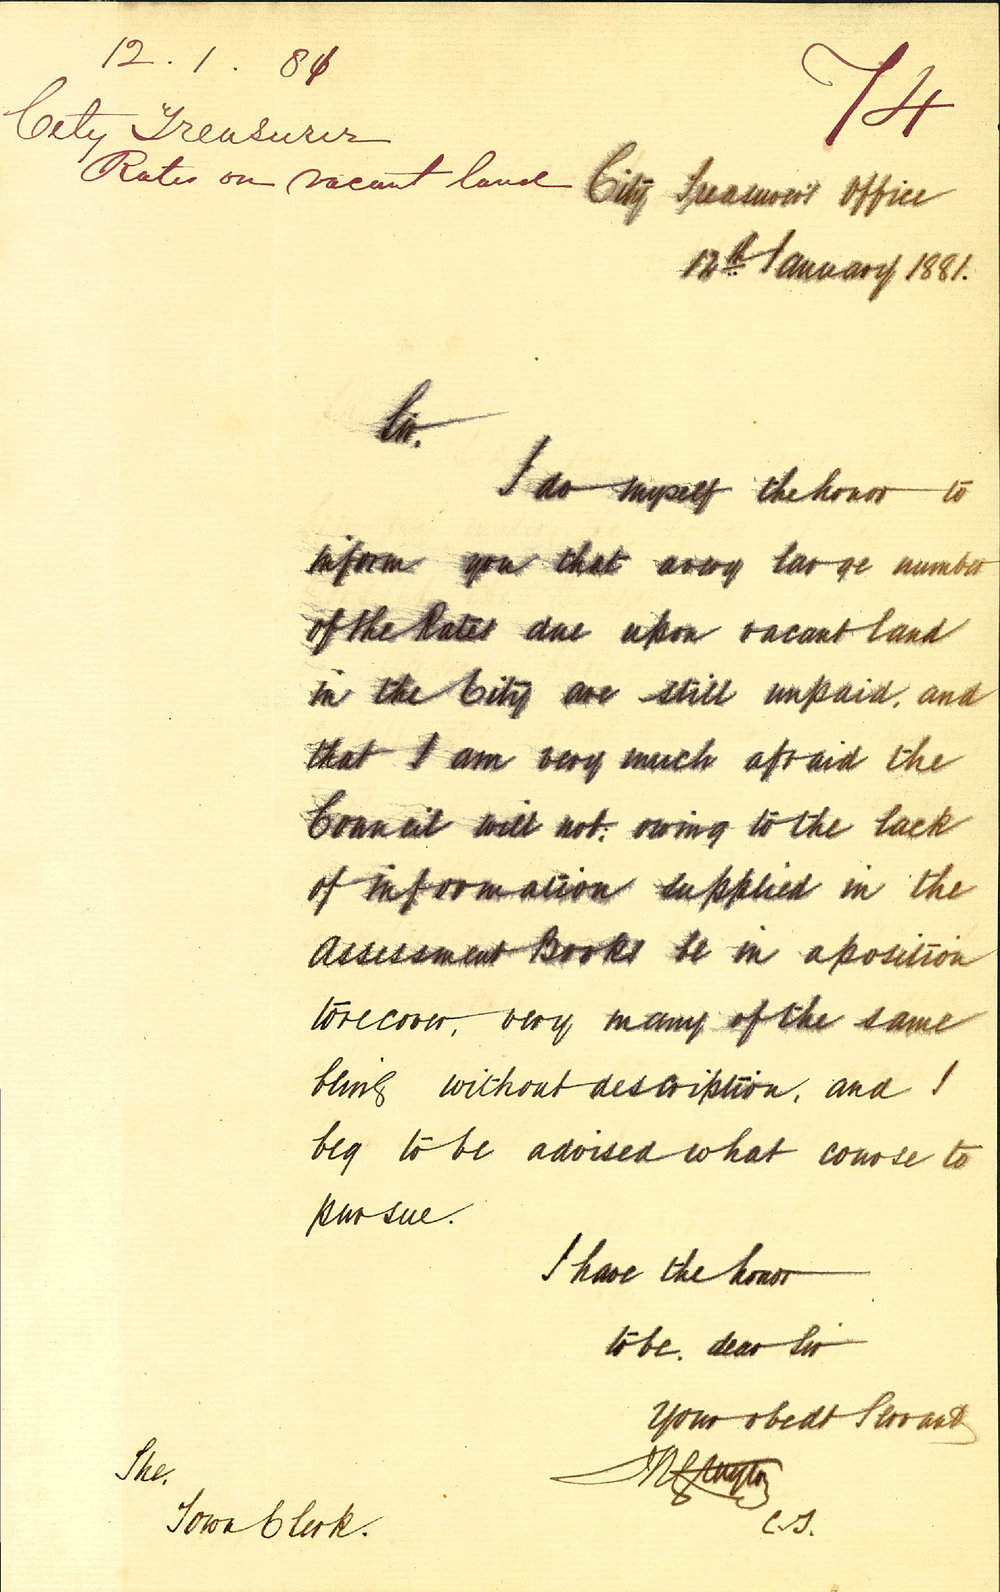 12.1.81
74
City Treasurer
Rates on vacant land
City Treasurer's Office
12th January 1881.
Sir.
I do myself the honor to
inform you that a very large number
of the Rates due upon vacant land
in the City are still unpaid, and
that I am very much afraid the
Council will not: owing to the lack
of information supplied in the
Assessment Books be in a position
to recover, very many of the same
being without description, and I
beg to be advised what course to
pursue.
I have the honor
to be, dear Sir
Your obedt Servant
C.T.
The,
Town Clerk.